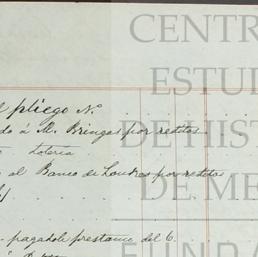 CENTR
ESTUI
DE HIST
DE ME
FUNDA
pliego Nº
do á M. Bringas por reditos
Loteria
al Banco de Londres por redito
pagaholé prestamo del 6.